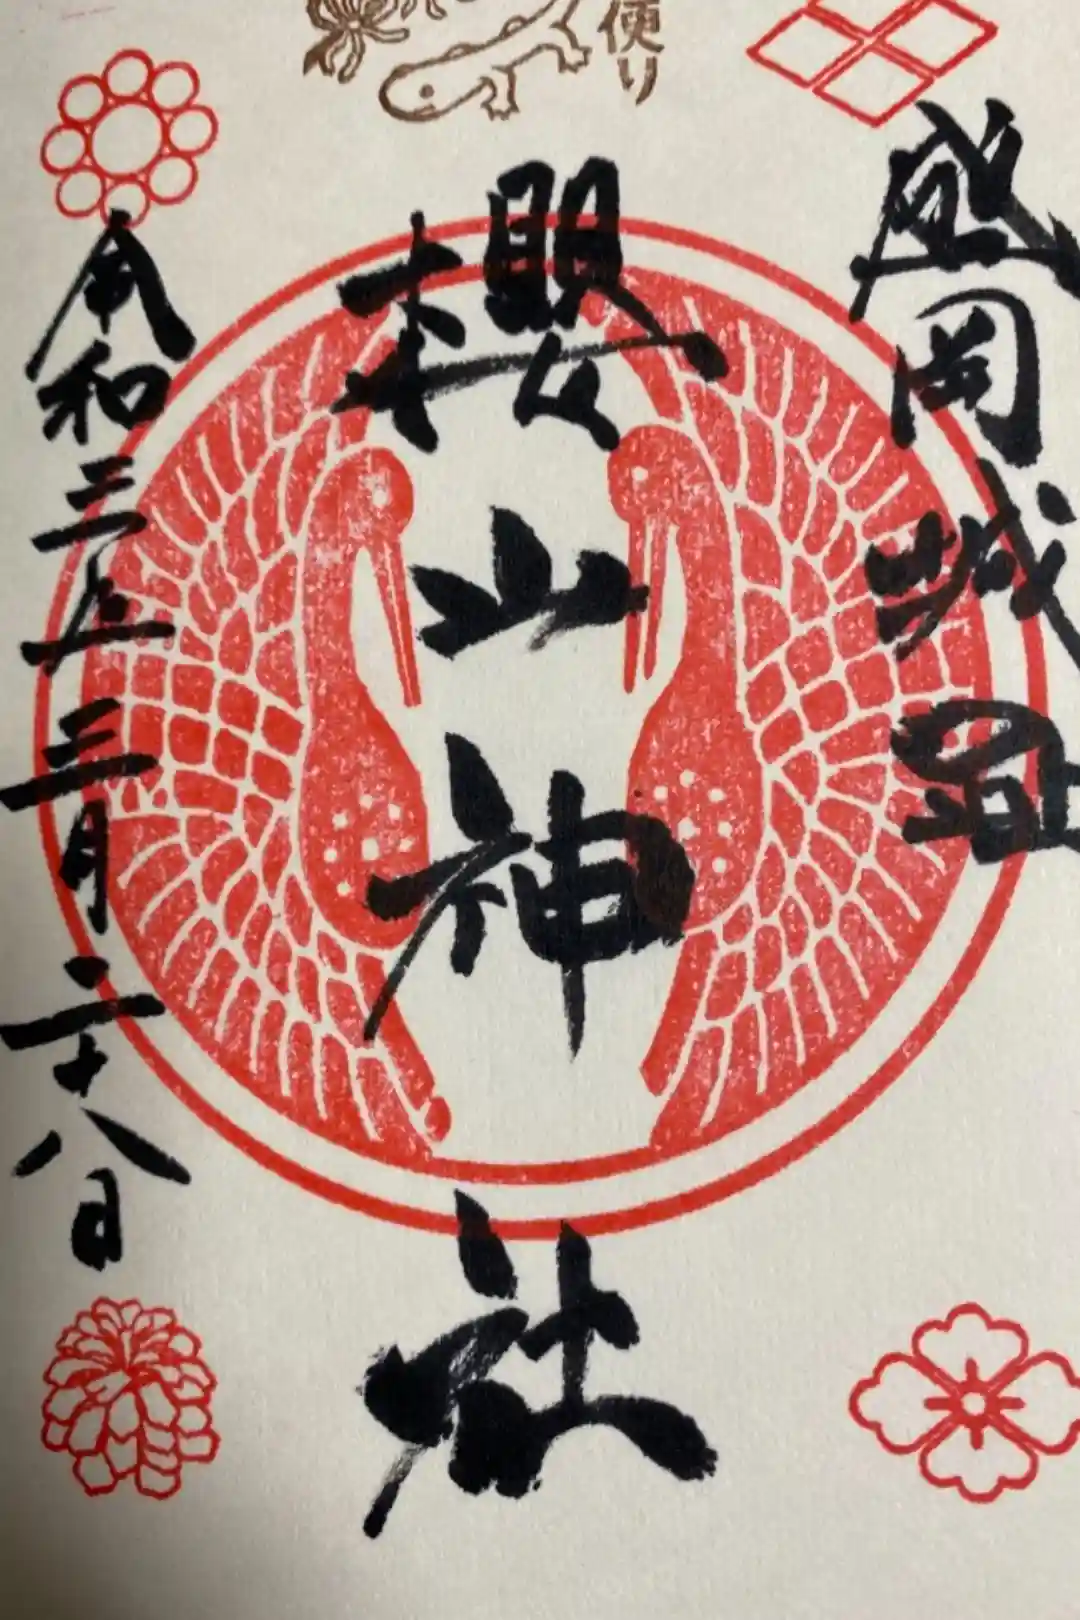 便り
盛岡城
櫻山神社
令和三年三月二十八日